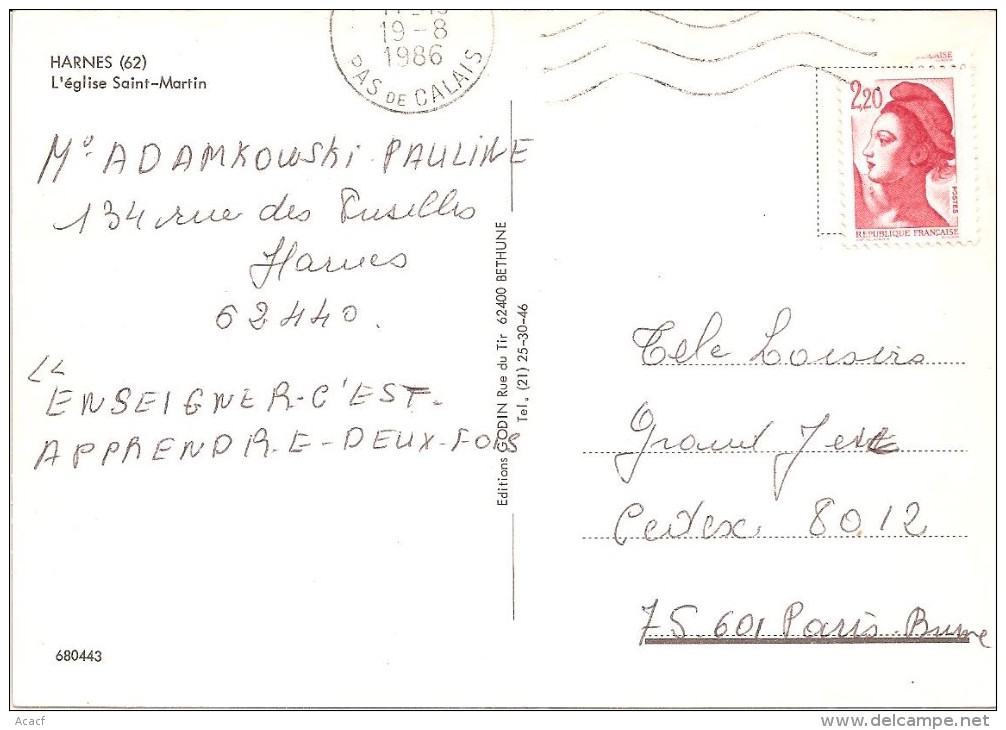 HARNES (62)
L'église Saint-Martin
19-8
1986
PAS DE CALAIS
AISE
2,20
POSTES
REPUBLIQUE FRANÇAISE
Me ADAMKOWSKI PAULINE
134 rue des Fusillés
Harnes
62440.
"ENSEIGNER-C'EST-
APPRENDRE-DEUX-FOIS
Editions GODIN Rue du Tir 62400 BETHUNE
Tel. (21) 25-30-46
Tele Loisirs
Grand Jeu
Cedex 8012
75 601 Paris Brune
680443
Acacf
www.delcampe.net